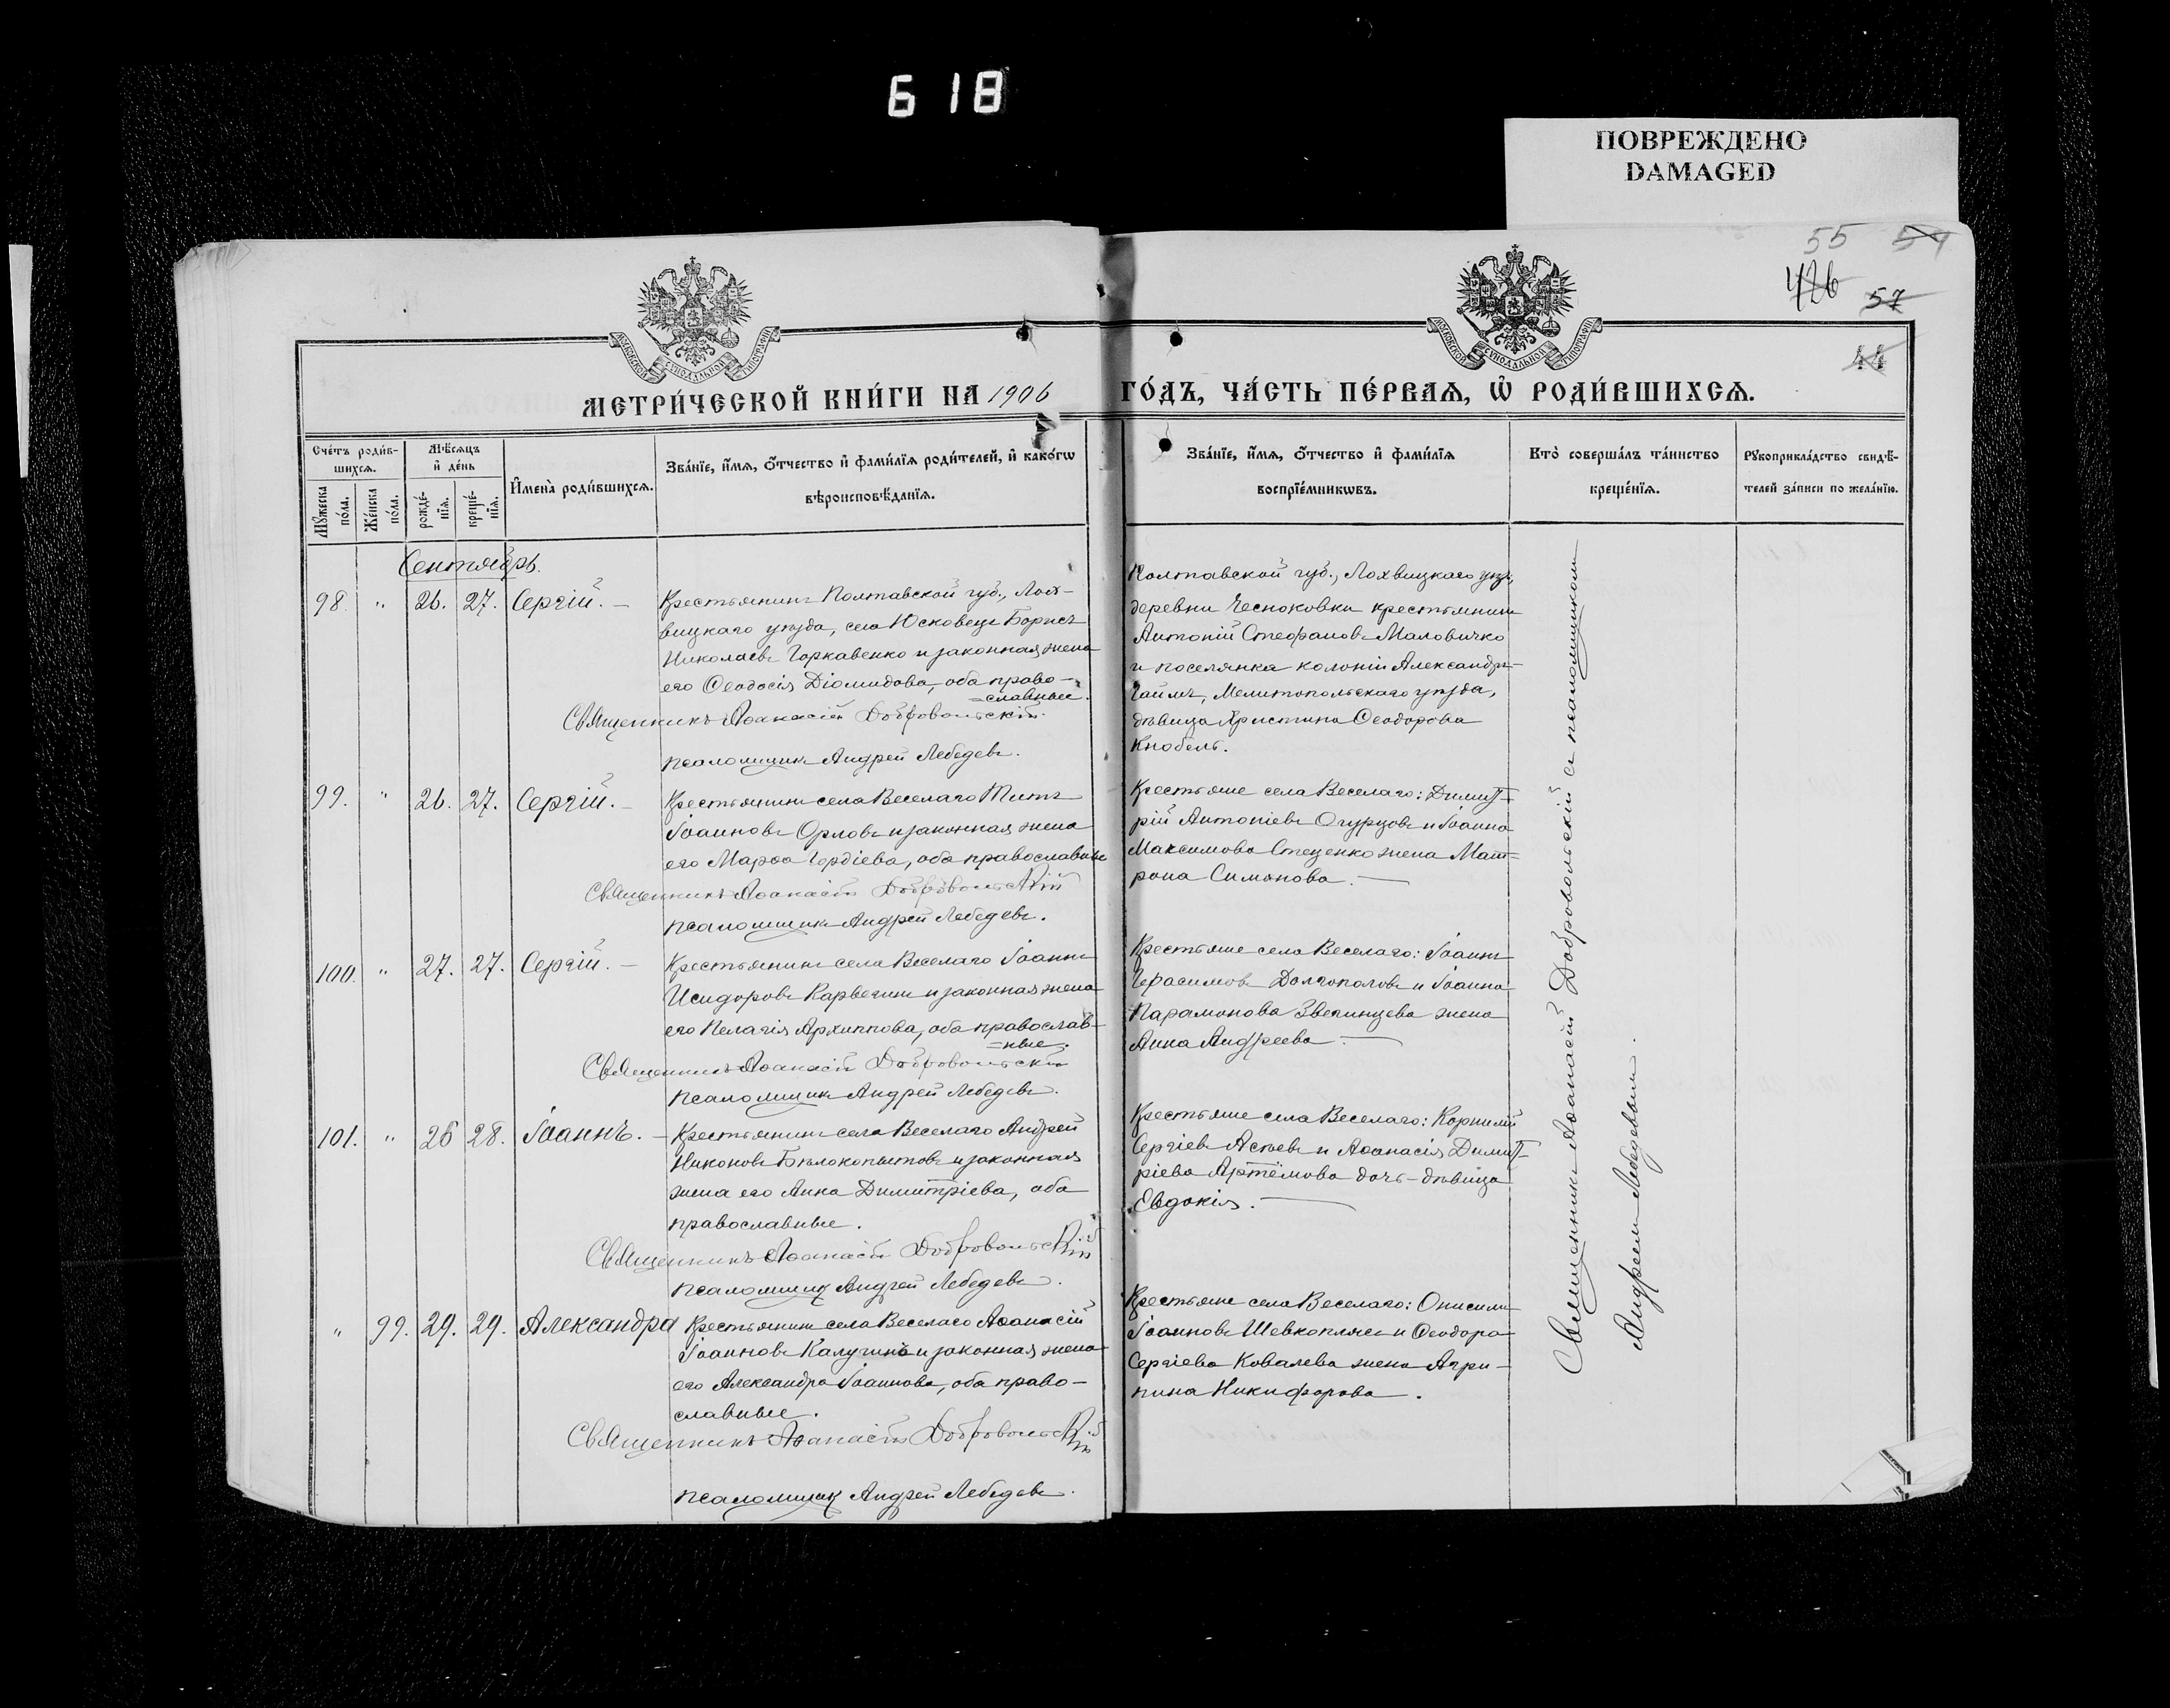 618
ПОВРЕЖДЕНО
DAMAGED
55 54
426 57
44
МОСКОВСКОЙ СѴНОДАЛЬНОЙ ТИПОГРАФІИ
МОСКОВСКОЙ СѴНОДАЛЬНОЙ ТИПОГРАФІИ
МЕТРИ́ЧЕСКОЙ КНИ́ГИ НА 1906 ГО́ДЪ, ЧА́СТЬ ПЕ́РВАѦ, Ѡ҆ РОДИ́ВШИХСѦ.
Сче́тъ роди́в-
шихсѧ.
Мꙋ́жеска по́ла.
Же́нска по́ла.
Мѣ́сѧцъ
и҆ де́нь
рожде́-
нїѧ.
креще́-
нїѧ.
И҆мена̀ роди́вшихсѧ.
Зва́нїе, и҆́мѧ, ѻ҆́тчество и҆ фами́лїѧ роди́телей, и҆ како́гѡ
вѣроисповѣ́данїѧ.
Зва́нїе, и҆́мѧ, ѻ҆́тчество и҆ фами́лїѧ
воспрїе́мникѡвъ.
Кто̀ соверша́лъ та́инство
креще́нїѧ.
Рꙋкоприкла́дство свидѣ́-
телей за́писи по жела́нїю.
Сентябрь.
98. " 26. 27. Сергій. –
Крестьянинъ Полтавской губ., Лох-
вицкаго уѣзда, села Юсковецъ Борисъ
Николаевъ Горкавенко и законная жена
его Ѳеодосія Діомидова, оба право-
=славные.
Священникъ Аѳанасій Добровольскій.
Псаломщикъ Андрей Лебедевъ.
Полтавской губ., Лохвицкаго уѣз.,
деревни Чесноковки крестьянинъ
Антоній Стефановъ Маловичко
и поселянка колоніи Александр-
гаймъ, Мелитопольскаго уѣзда,
дѣвица Христина Ѳеодорова
Кнобель.
99. " 26. 27. Сергій. –
Крестьянинъ села Веселаго Титъ
Іоанновъ Орловъ и законная жена
его Марѳа Гордіева, оба православные
Священникъ Аѳанасій Добровольскій
Псаломщикъ Андрей Лебедевъ.
Крестьяне села Веселаго: Димит-
рій Антоніевъ Огурцовъ и Іоанна
Максимова Стеценко жена Мат=
рона Симонова. —
100. " 27. 27. Сергій. –
Крестьянинъ села Веселаго Іоаннъ
Исидоровъ Карвегинъ и законная жена
его Пелагія Архиппова, оба православ-
=ные.
Священникъ Аѳанасій Добровольскій
Псаломщикъ Андрей Лебедевъ.
Крестьяне села Веселаго: Іоаннъ
Герасимовъ Долгополовъ и Іоанна
Парамонова Звегинцева жена
Анна Андреева. —
101. " 26 28. Іоаннъ. –
Крестьянинъ села Веселаго Андрей
Никоновъ Бѣлокопытовъ и законная
жена его Анна Димитріева, оба
православные.
Священникъ Аѳанасій Добровольскій
Псаломщикъ Андрей Лебедевъ.
Крестьяне села Веселаго: Корнилій
Сергіевъ Асѣевъ и Аѳанасія Димит-
ріева Артёмова дочь-дѣвица
Евдокія. —
" 99. 29. 29. Александра
Крестьянинъ села Веселаго Аѳанасій
Іоанновъ Калугинъ и законная жена
его Александра Іоаннова, оба право-
славные.
Священникъ Аѳанасій Добровольскій
Псаломщикъ Андрей Лебедевъ.
Крестьяне села Веселаго: Онисимъ
Іоанновъ Шевкоплясъ и Ѳеодора
Сергіева Ковалева жена Агри-
пина Никифорова.
Священникъ Аѳанасій Добровольскій съ псаломщикомъ
Андреемъ Лебедевымъ.